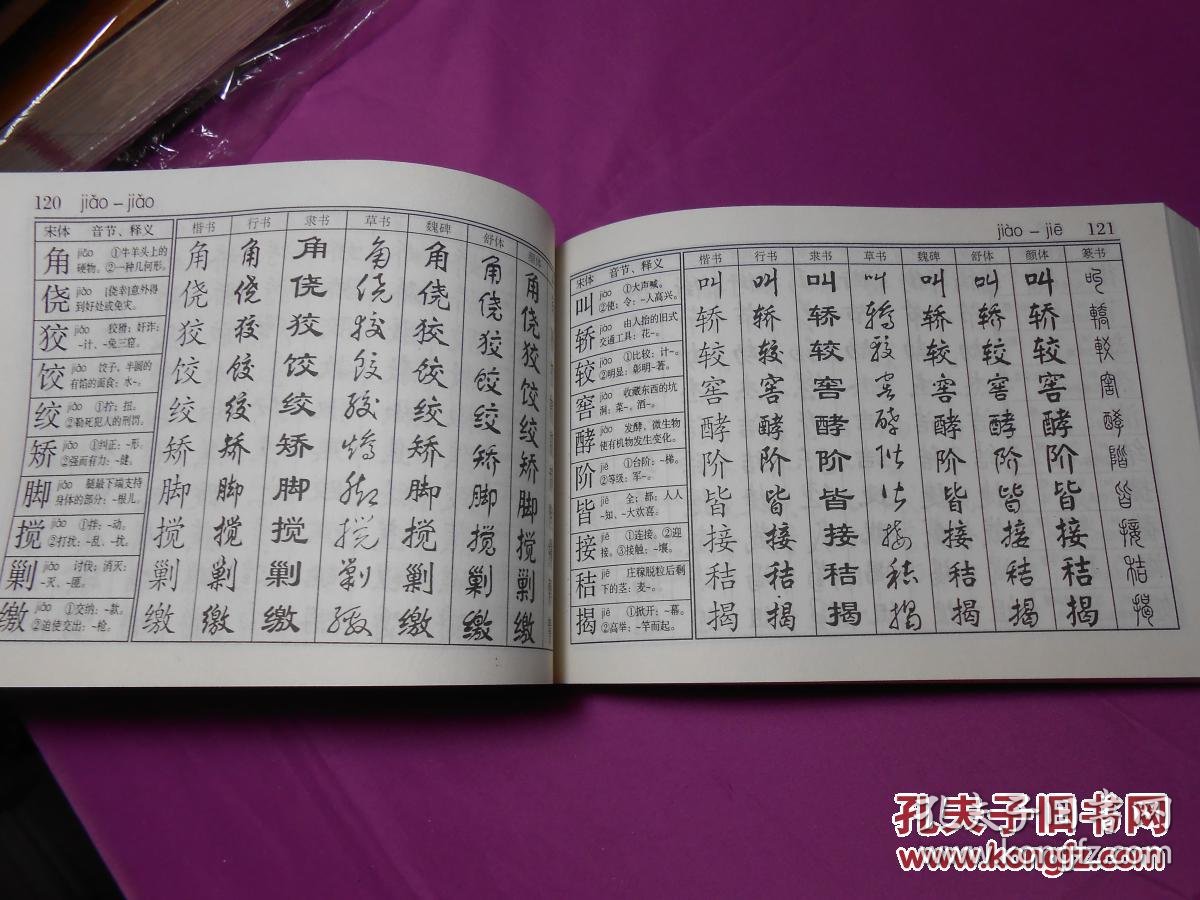 120 jiǎo – jiǎo
宋体 音节、释义 楷书 行书 隶书 草书 魏碑 舒体 颜体
角 jiǎo ①牛羊头上的硬物。②一种几何形。 角 角 角 角 角 角 角
侥 jiǎo [侥幸]意外得到好处或免灾。 侥 侥 侥 侥 侥 侥 侥
狡 jiǎo 狡猾；奸诈：~计、~兔三窟。 狡 狡 狡 狡 狡 狡 狡
饺 jiǎo 饺子，半圆的有馅的面食：水~。 饺 饺 饺 饺 饺 饺 饺
绞 jiǎo ①拧；扭。②勒死犯人的刑罚。 绞 绞 绞 绞 绞 绞 绞
矫 jiǎo ①纠正：~形。②强而有力：~健。 矫 矫 矫 矫 矫 矫 矫
脚 jiǎo 腿最下端支持身体的部分：~根儿。 脚 脚 脚 脚 脚 脚 脚
搅 jiǎo ①拌：~动。②打扰：~乱、~扰。 搅 搅 搅 搅 搅 搅 搅
剿 jiǎo 讨伐；消灭：~灭、~匪。 剿 剿 剿 剿 剿 剿 剿
缴 jiǎo ①交纳：~款。②迫使交出：~枪。 缴 缴 缴 缴 缴 缴 缴
jiào – jiē 121
宋体 音节、释义 楷书 行书 隶书 草书 魏碑 舒体 颜体 篆书
叫 jiào ①大声喊。②使；令：~人高兴。 叫 叫 叫 叫 叫 叫 叫 叫
轿 jiào 由人抬的旧式交通工具：花~。 轿 轿 轿 轎 轿 轿 轿 轎
较 jiào ①比较：计~。②明显：彰明~著。 较 较 较 較 较 较 较 較
窖 jiào 收藏东西的坑洞：菜~。酒~。 窖 窖 窖 窖 窖 窖 窖 窖
酵 jiào 发酵，微生物使有机物发生变化。 酵 酵 酵 酵 酵 酵 酵 酵
阶 jiē ①台阶：~梯。②等级：军~。 阶 阶 阶 阶 阶 阶 阶 階
皆 jiē 全；都：人人~知、~大欢喜。 皆 皆 皆 皆 皆 皆 皆 皆
接 jiē ①连接。②迎接。③接触：~壤。 接 接 接 接 接 接 接 接
秸 jiē 庄稼脱粒后剩下的茎：麦~。 秸 秸 秸 秸 秸 秸 秸 秸
揭 jiē ①掀开：~幕。②高举：~竿而起。 揭 揭 揭 揭 揭 揭 揭 揭
孔夫子旧书网
www.kongfz.com